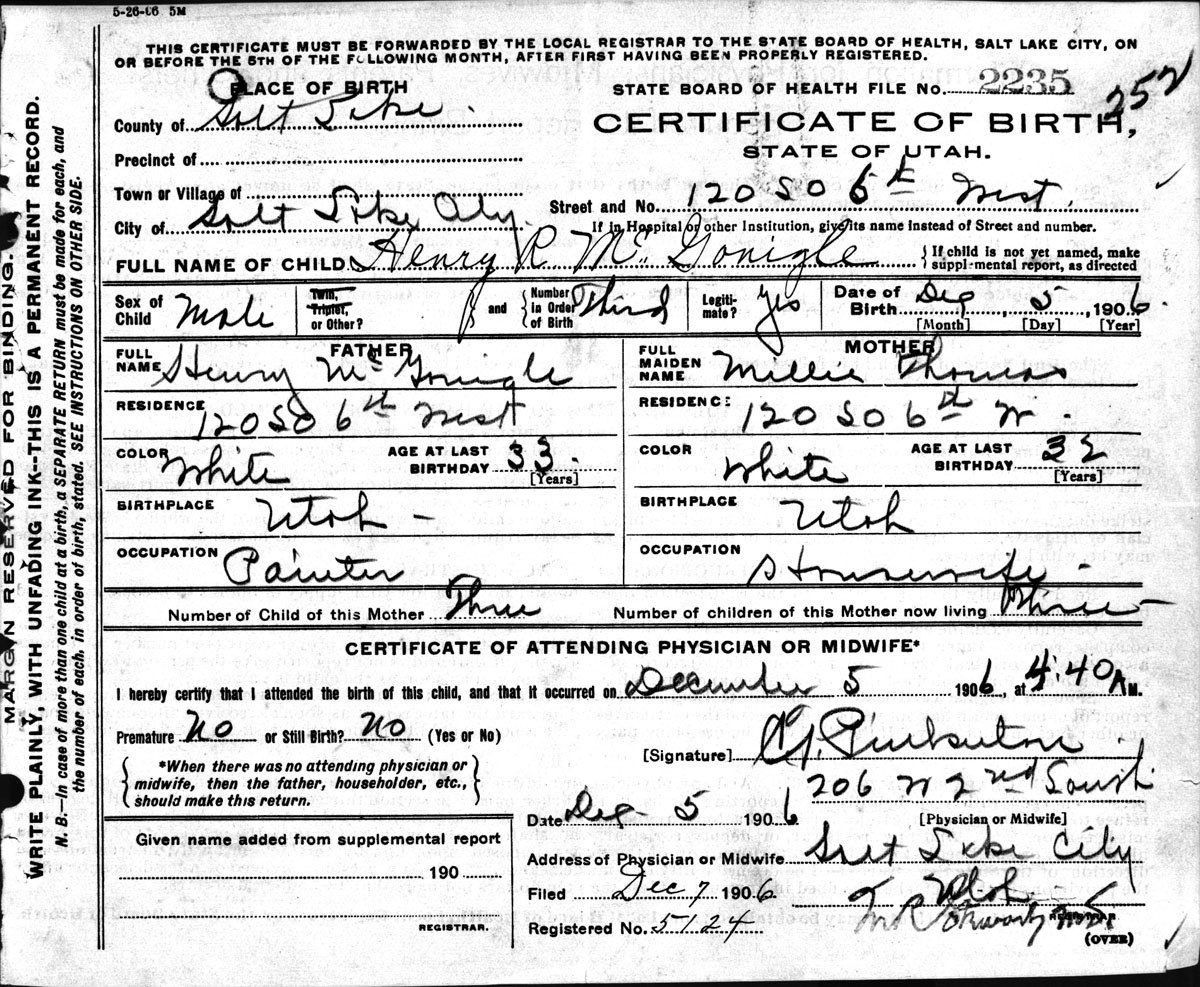 5-26-06 5M
THIS CERTIFICATE MUST BE FORWARDED BY THE LOCAL REGISTRAR TO THE STATE BOARD OF HEALTH, SALT LAKE CITY, ON
OR BEFORE THE 5TH OF THE FOLLOWING MONTH, AFTER FIRST HAVING BEEN PROPERLY REGISTERED.
PLACE OF BIRTH
STATE BOARD OF HEALTH FILE No. 2235
252
County of Salt Lake.
CERTIFICATE OF BIRTH,
Precinct of
STATE OF UTAH.
Town or Village of
City of Salt Lake City.
Street and No. 120 SO 6th West.
If in Hospital or other Institution, give its name instead of Street and number.
FULL NAME OF CHILD Henry R McGonigle
{ If child is not yet named, make
suppl-mental report, as directed
Sex of Child Male
Twin, Triplet, or Other?
} and { Number in Order of Birth Third
Legiti-mate? Yes
Date of Birth Dec, 5, 1906.
[Month] [Day] [Year]
FATHER
FULL NAME Henry McGonigle
RESIDENCE 120 SO 6th West
COLOR White
AGE AT LAST BIRTHDAY 33.
[Years]
BIRTHPLACE Utah -
OCCUPATION Painter
MOTHER
FULL MAIDEN NAME Millie Thomas
RESIDENC: 120 SO 6th W.
COLOR White
AGE AT LAST BIRTHDAY 32
[Years]
BIRTHPLACE Utah
OCCUPATION Housewife -
Number of Child of this Mother Three
Number of children of this Mother now living Three -
CERTIFICATE OF ATTENDING PHYSICIAN OR MIDWIFE*
I hereby certify that I attended the birth of this child, and that it occurred on December 5 1906, at 4.40 A M.
Premature No or Still Birth? No (Yes or No)
[Signature] Pinkerton
*When there was no attending physician or
midwife, then the father, householder, etc.,
should make this return.
206 W 2nd South
Date Dec - 5 1906
[Physician or Midwife]
Given name added from supplemental report
190
REGISTRAR.
Address of Physician or Midwife Salt Lake City
Utah
Filed Dec 7 1906
Registered No. 5124
REGISTRAR.
(OVER)
MARGIN RESERVED FOR BINDING.
WRITE PLAINLY, WITH UNFADING INK--THIS IS A PERMANENT RECORD.
N. B.--In case of more than one child at a birth, a SEPARATE RETURN must be made for each, and
the number of each, in order of birth, stated. SEE INSTRUCTIONS ON OTHER SIDE.